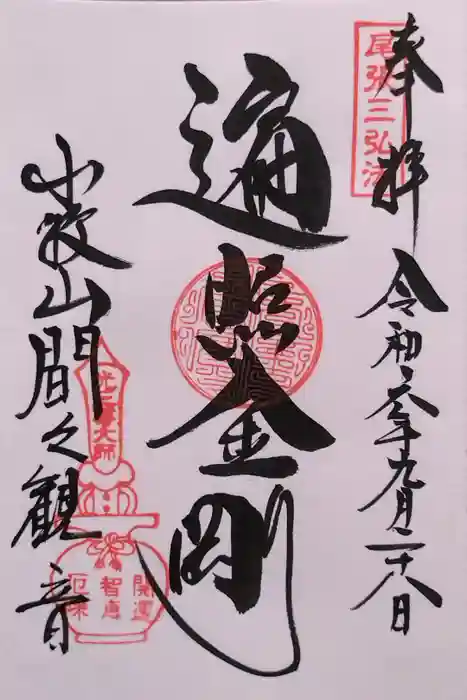 奉拝
令和六年九月二十八日
尾張三弘法
遍照金剛
小牧山間々観音
弘法大師
開運
智恵
厄除